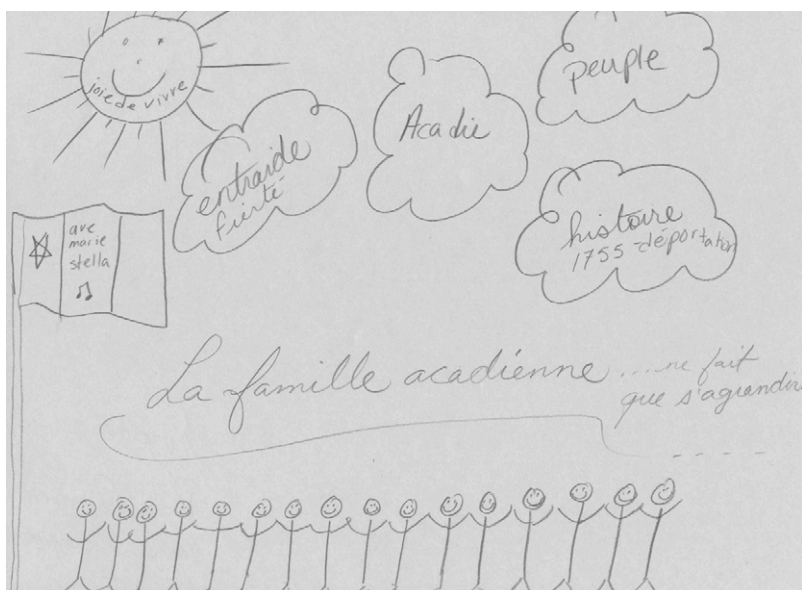 joie de vivre
peuple
Acadie
entraide
fierté
histoire
1755-déportation
ave
marie
stella
La famille acadiénne ....ne fait
que s'agrandir